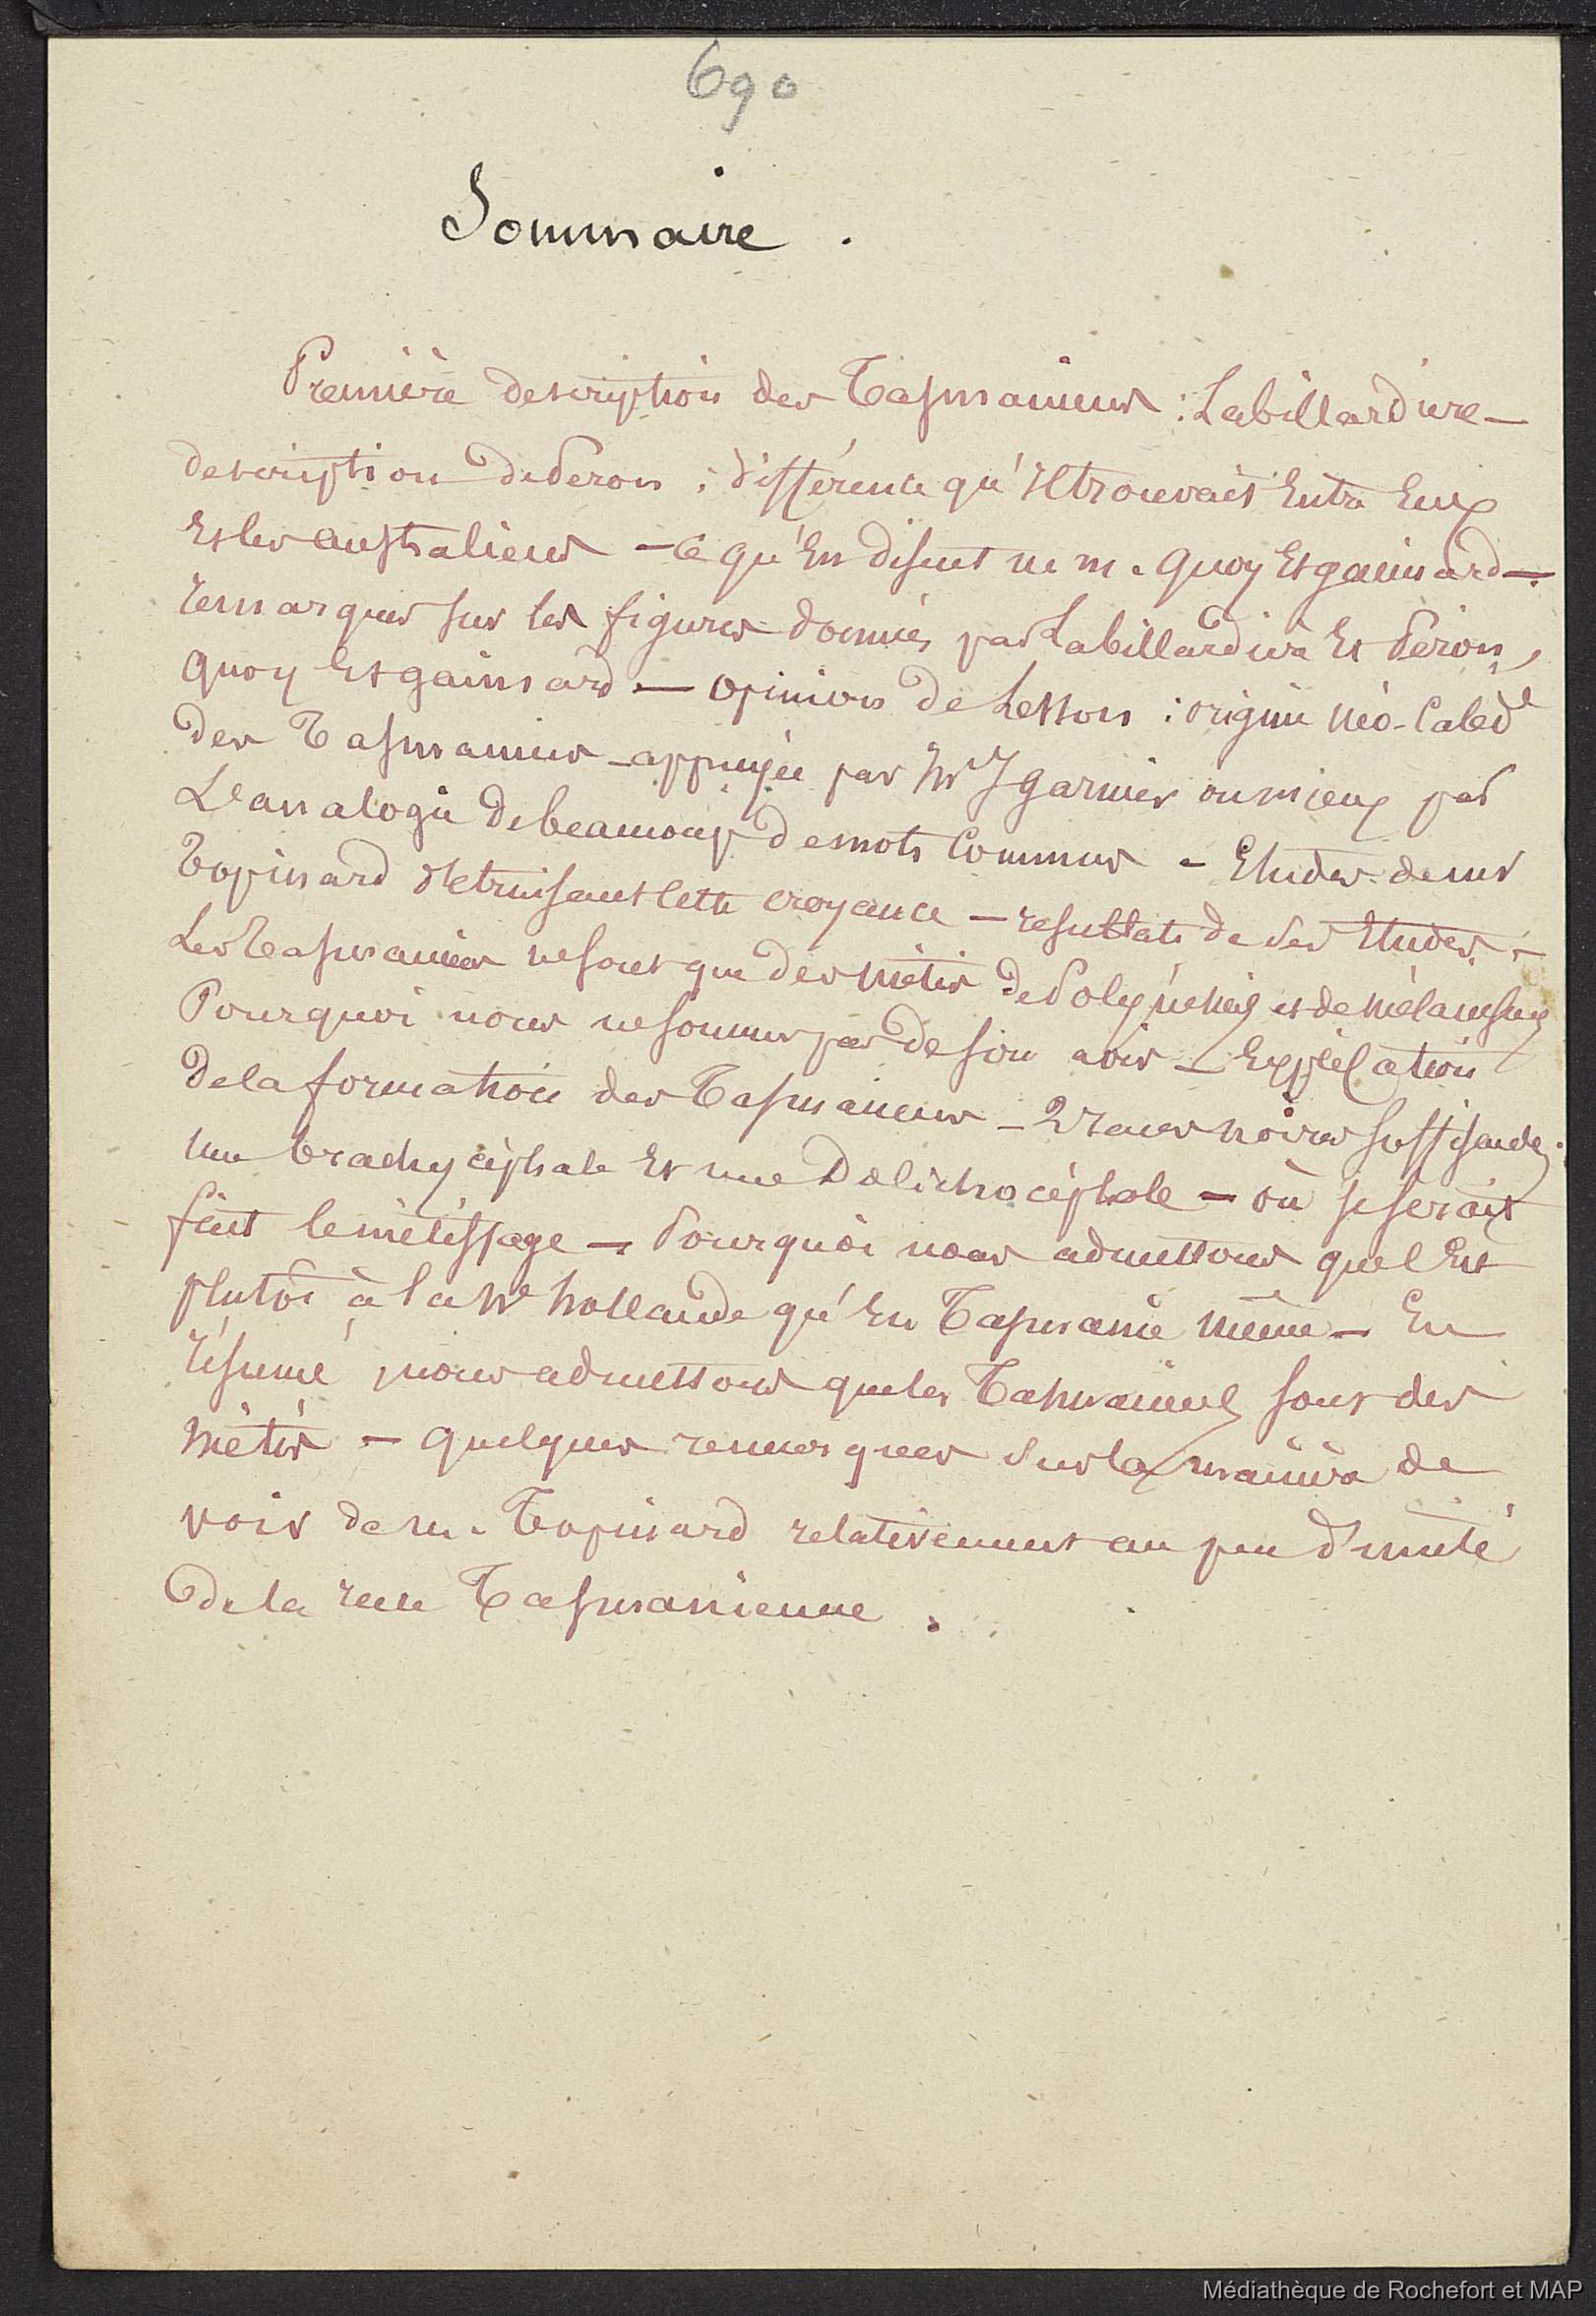 690
Sommaire .
Première description des Tasmaniens : Labillardière —
description de Péron ; différence qu'il trouvait entre Eux
Et les australiens — ce qu'En disent m m. Quoy Et gaimard —
remarques sur les figures données par Labillardière Et Péron,
Quoy Et gaimard — opinion de Lesson : origine néo-Caled^e
des Tasmaniens - appuyée par Mr J garnier ou mieux par
L'analogie de beaucoup de mots Communs - Etudes de mr
Topinard détruisant cette croyance — résultats de ses Etudes. -
Les Tasmaniens ne sont que des métis de Polynésiens et de mélanésiens
Pourquoi nous ne sommes pas de son avis — Explication
de la formation des Tasmaniens - 2 races noires suffisantes :
une brachycéphale Et une Dolichocéphale — où se serait
fait le métissage — Pourquoi nous admettons que c'Est
plutôt à la Nlle hollande qu'En Tasmanie même — En
résumé, nous admettons que les Tasmaniens sont des
métis — quelques remarques sur la manière de
voir de m. Topinard relativement au peu d'unité
de la race Tasmanienne .
Médiathèque de Rochefort et MAP